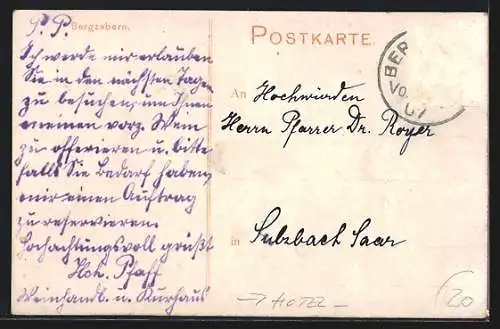 P. P.
Bergzabern.
Ich werde mir erlauben
Sie in den nächsten Tagen
zu besuchen, um Ihnen
meinen vorz. Wein
zu offerieren u. bitte
falls Sie Bedarf haben,
mir einen Auftrag
zu reservieren.
Hochachtungsvoll grüßt
Hch. Pfaff
Weinhandl. u. Kurhaus
POSTKARTE.
BER
VO
07
An Hochwürden
Herrn Pfarrer Dr. Royer
in Sulzbach Saar
HOTEL
20